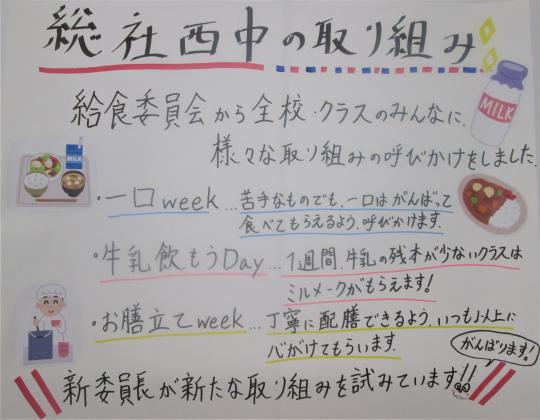 総社西中の取り組み
給食委員会から全校・クラスのみんなに、
様々な取り組みの呼びかけをしました。
MILK
MILK
・一口week…苦手なものでも、一口はがんばって
食べてもらえるよう、呼びかけます。
・牛乳飲もうDay…1週間、牛乳の残本が少ないクラスは
ミルメークがもらえます!
・お膳立てweek…丁寧に配膳できるよう、いつも以上に
心がけてもらいます。
がんばります!
新委員長が新たな取り組みを試みています!!